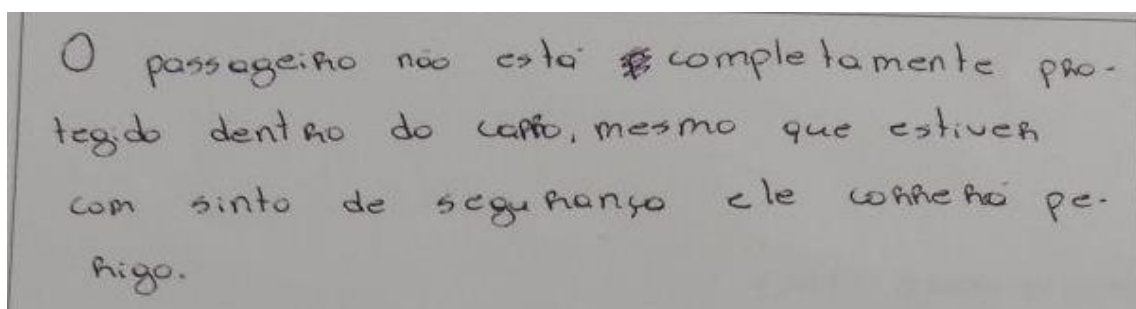 O passageiro não está completamente pro-
tegido dentro do carro, mesmo que estiver
com sinto de segurança ele correrá pe-
rigo.